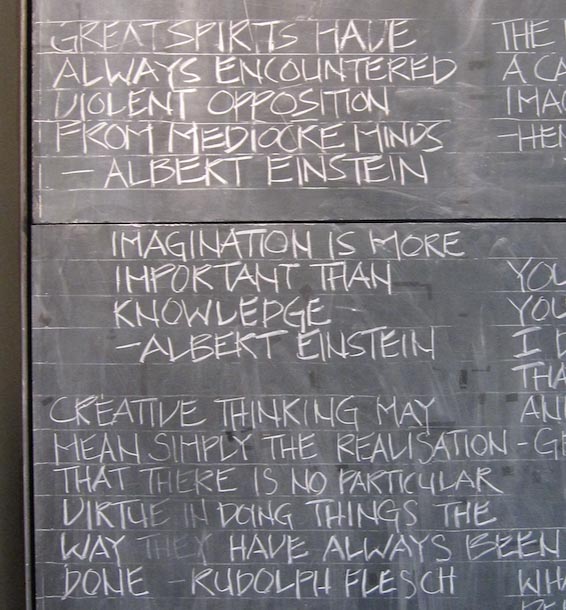 GREAT SPIRITS HAVE
ALWAYS ENCOUNTERED
VIOLENT OPPOSITION
FROM MEDIOCRE MINDS
- ALBERT EINSTEIN
IMAGINATION IS MORE
IMPORTANT THAN
KNOWLEDGE
-ALBERT EINSTEIN
CREATIVE THINKING MAY
MEAN SIMPLY THE REALISATION
THAT THERE IS NO PARTICULAR
VIRTUE IN DOING THINGS THE
WAY THEY HAVE ALWAYS BEEN
DONE - RUDOLPH FLESCH
THE
A CA
IMAG
-HEN
YOU
YOU
I
THA
AN
-GE
WHA